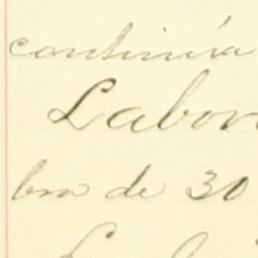 continúa
Labor
bre de 30